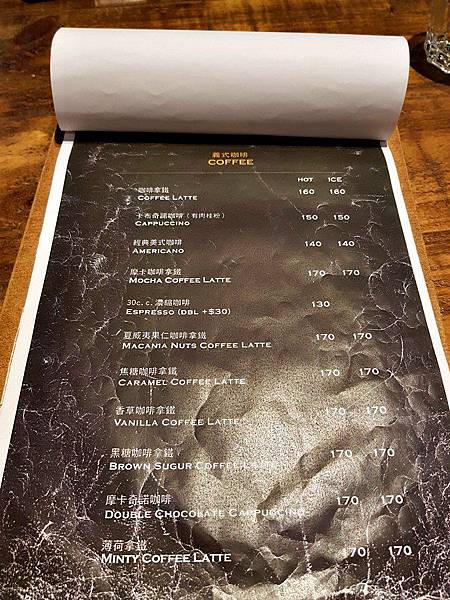 義式咖啡
COFFEE
HOT ICE
咖啡拿鐵
COFFEE LATTE 160 160
卡布奇諾咖啡（有肉桂粉）
CAPPUCCINO 150 150
經典美式咖啡
AMERICANO 140 140
摩卡咖啡拿鐵
MOCHA COFFEE LATTE 170 170
30c.c.濃縮咖啡
ESPRESSO (DBL +$30) 130
夏威夷果仁咖啡拿鐵
MACANIA NUTS COFFEE LATTE 170 170
焦糖咖啡拿鐵
CARAMEL COFFEE LATTE 170 170
香草咖啡拿鐵
VANILLA COFFEE LATTE 170 170
黑糖咖啡拿鐵
BROWN SUGUR COFFEE LATTE 170 170
摩卡奇諾咖啡
DOUBLE CHOCOLATE CAPPUCCINO 170 170
薄荷拿鐵
MINTY COFFEE LATTE 170 170